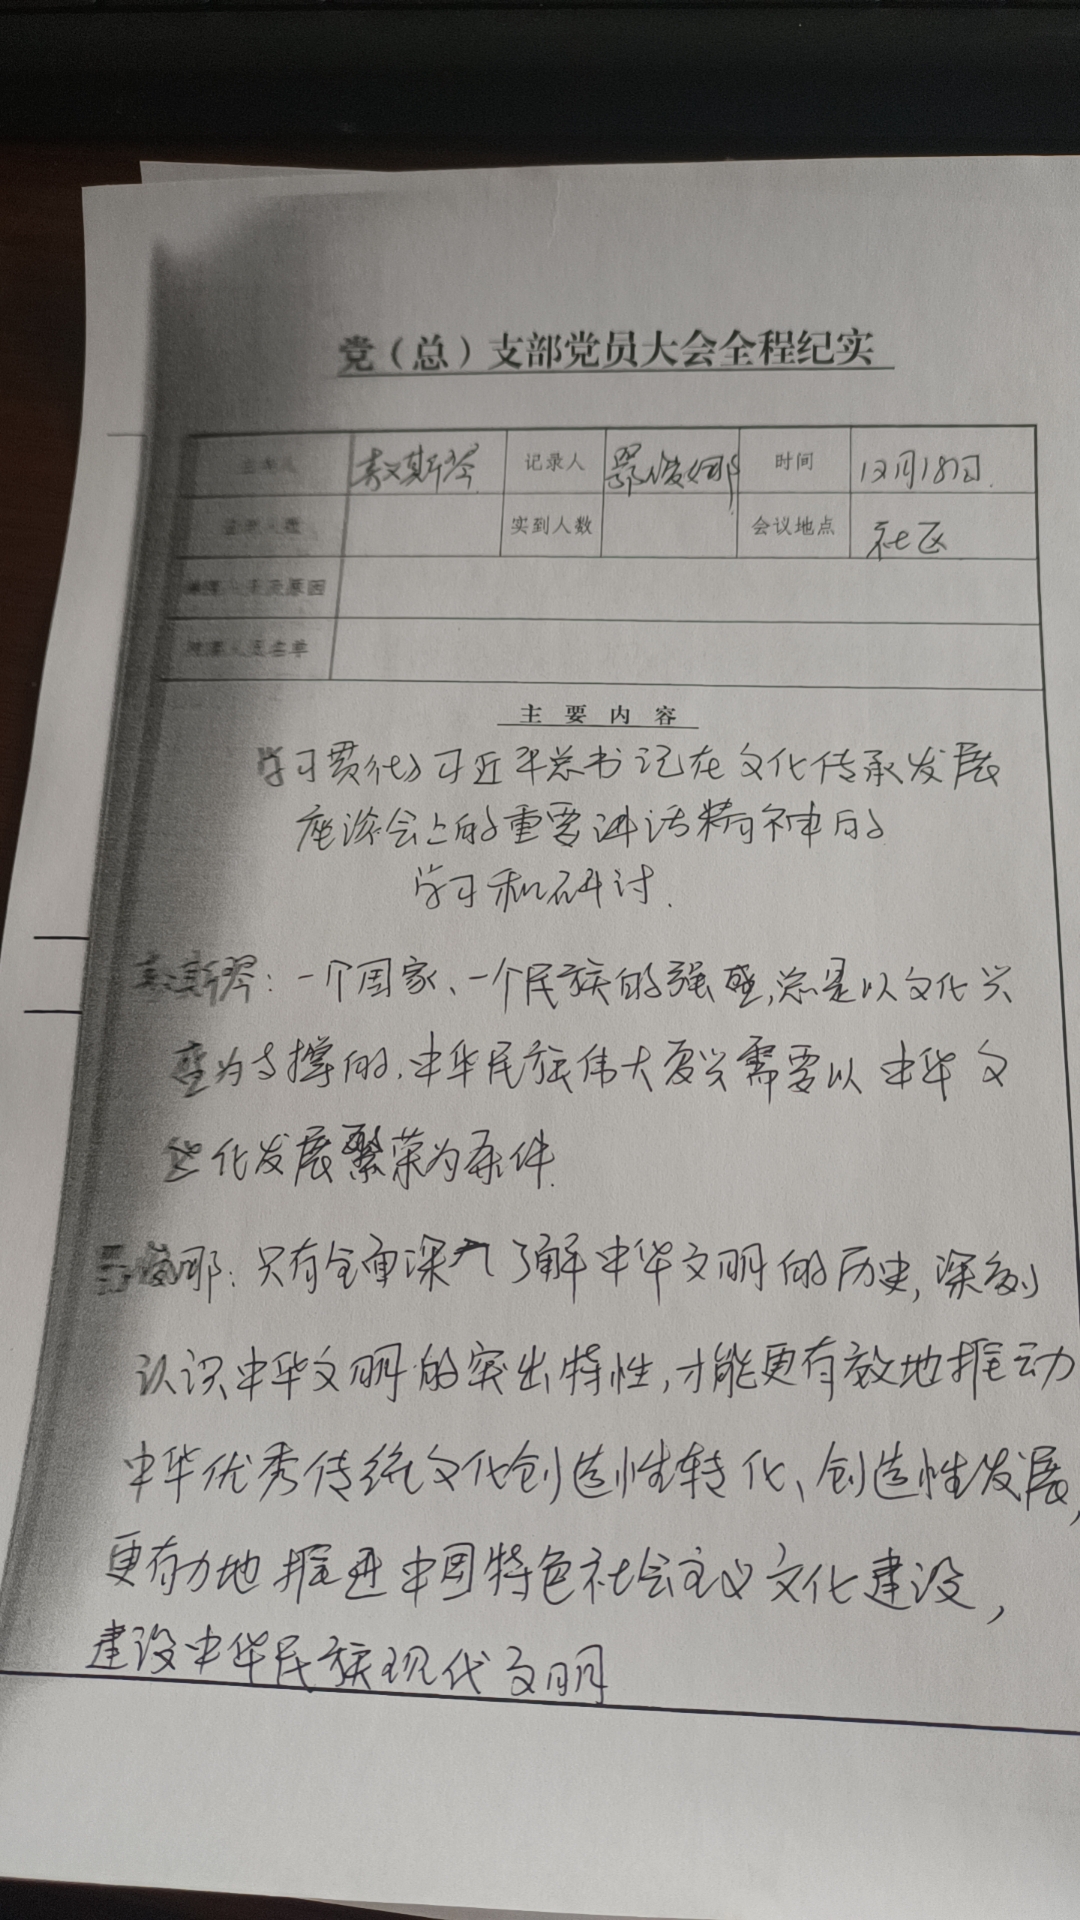 党（总）支部党员大会全程纪实
主持人 敖斯琴 记录人 鄂俊娜 时间 12月18日.
应到人数 实到人数 会议地点 社区
缺席人员及原因
列席人员名单
主要内容
学习贯彻习近平总书记在文化传承发展
座谈会上的重要讲话精神的
学习和研讨.
敖斯琴：一个国家、一个民族的强盛,总是以文化兴
盛为支撑的.中华民族伟大复兴需要以中华文
化发展繁荣为条件.
鄂俊娜：只有全面深入了解中华文明的历史,深刻
认识中华文明的突出特性,才能更有效地推动
中华优秀传统文化创造性转化、创造性发展,
更有力地推进中国特色社会主义文化建设,
建设中华民族现代文明